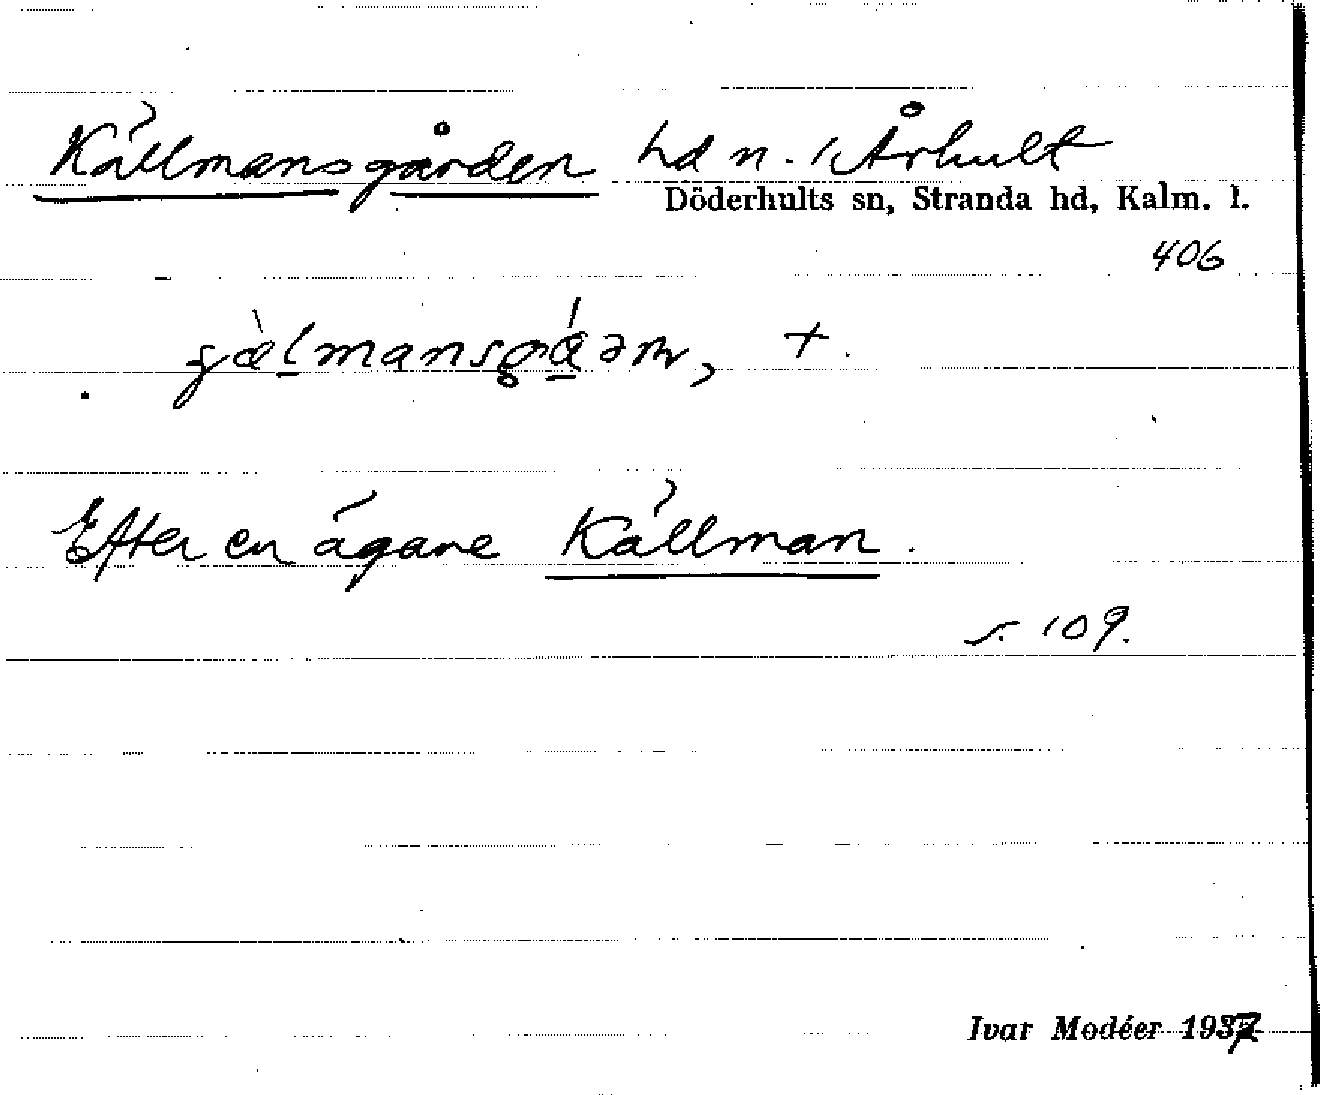 Källmansgården hd n. i Århult
Döderhults sn, Stranda hd, Kalm. l.
406
+.
Efter en ägare Källman.
s. 109.
Ivar Modéer 1937